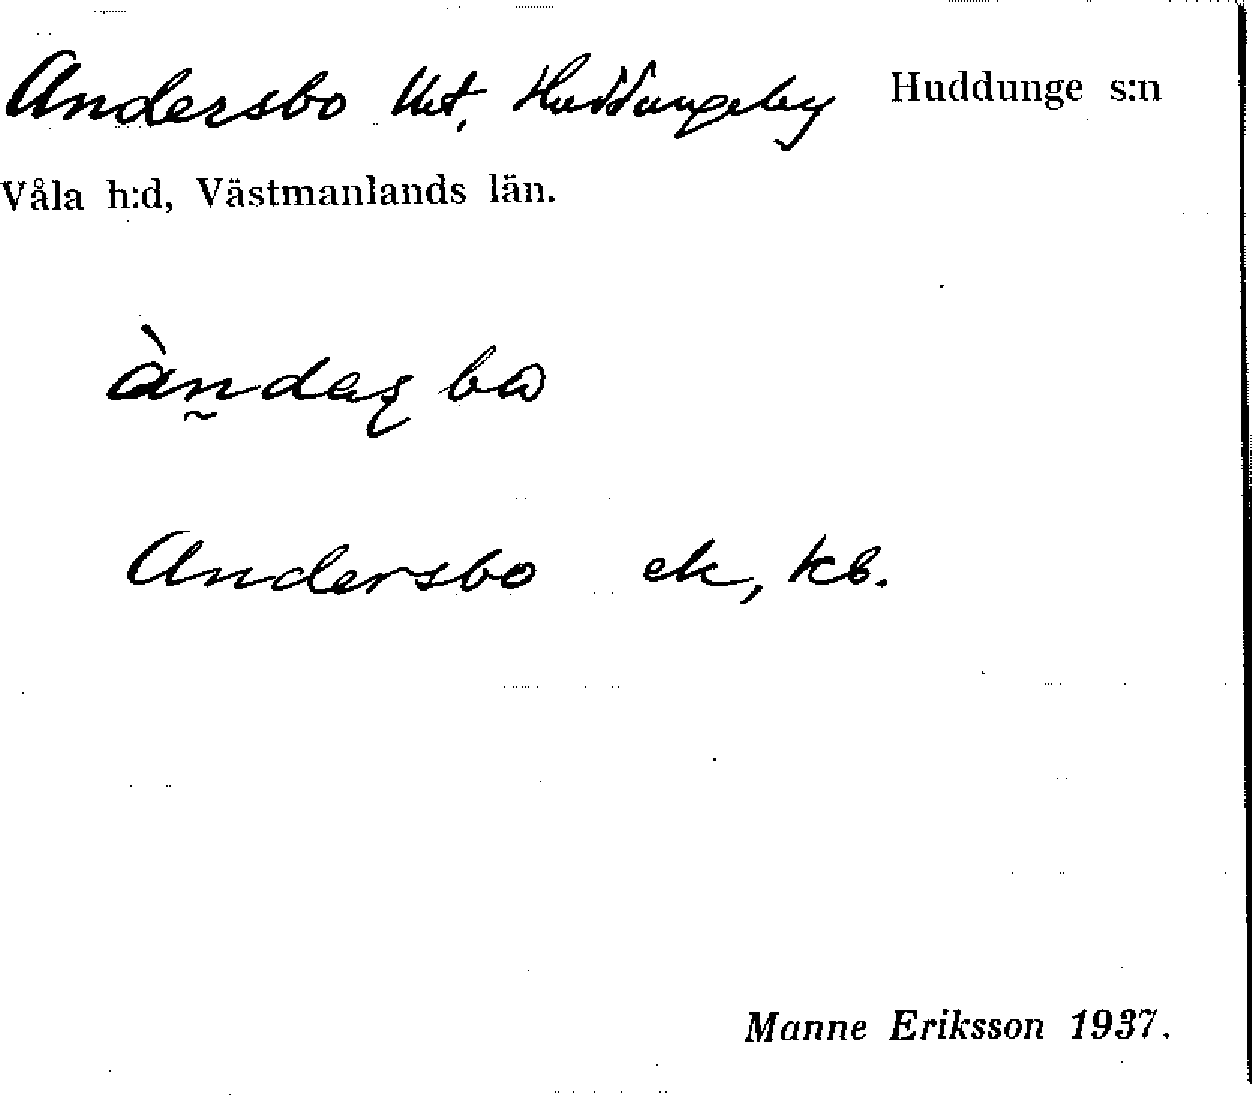 Andersbo lht, Huddungeby Huddunge s:n
Våla h:d, Västmanlands län.
àn̰das̨ bω
Andersbo ek, kb.
Manne Eriksson 1937.